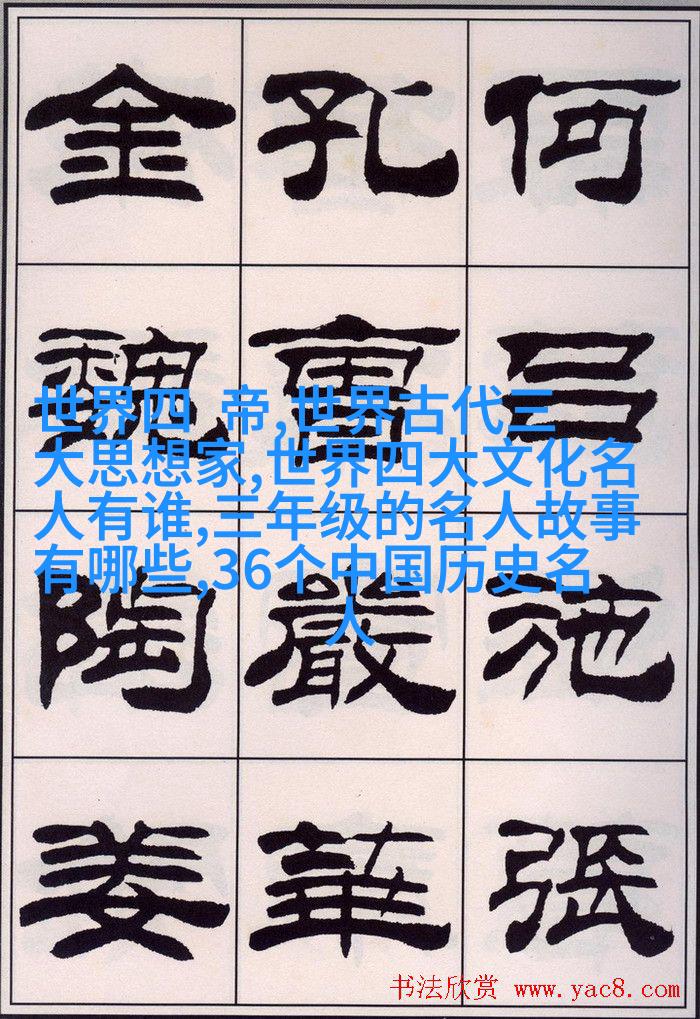 何呂施張
孔曹嚴華
金魏陶姜
世界四 帝,世界古代三
大思想家,世界四大文化名
人有谁,三年级的名人故事
有哪些,36个中国历史名
人
书法欣赏 www.yac8.com